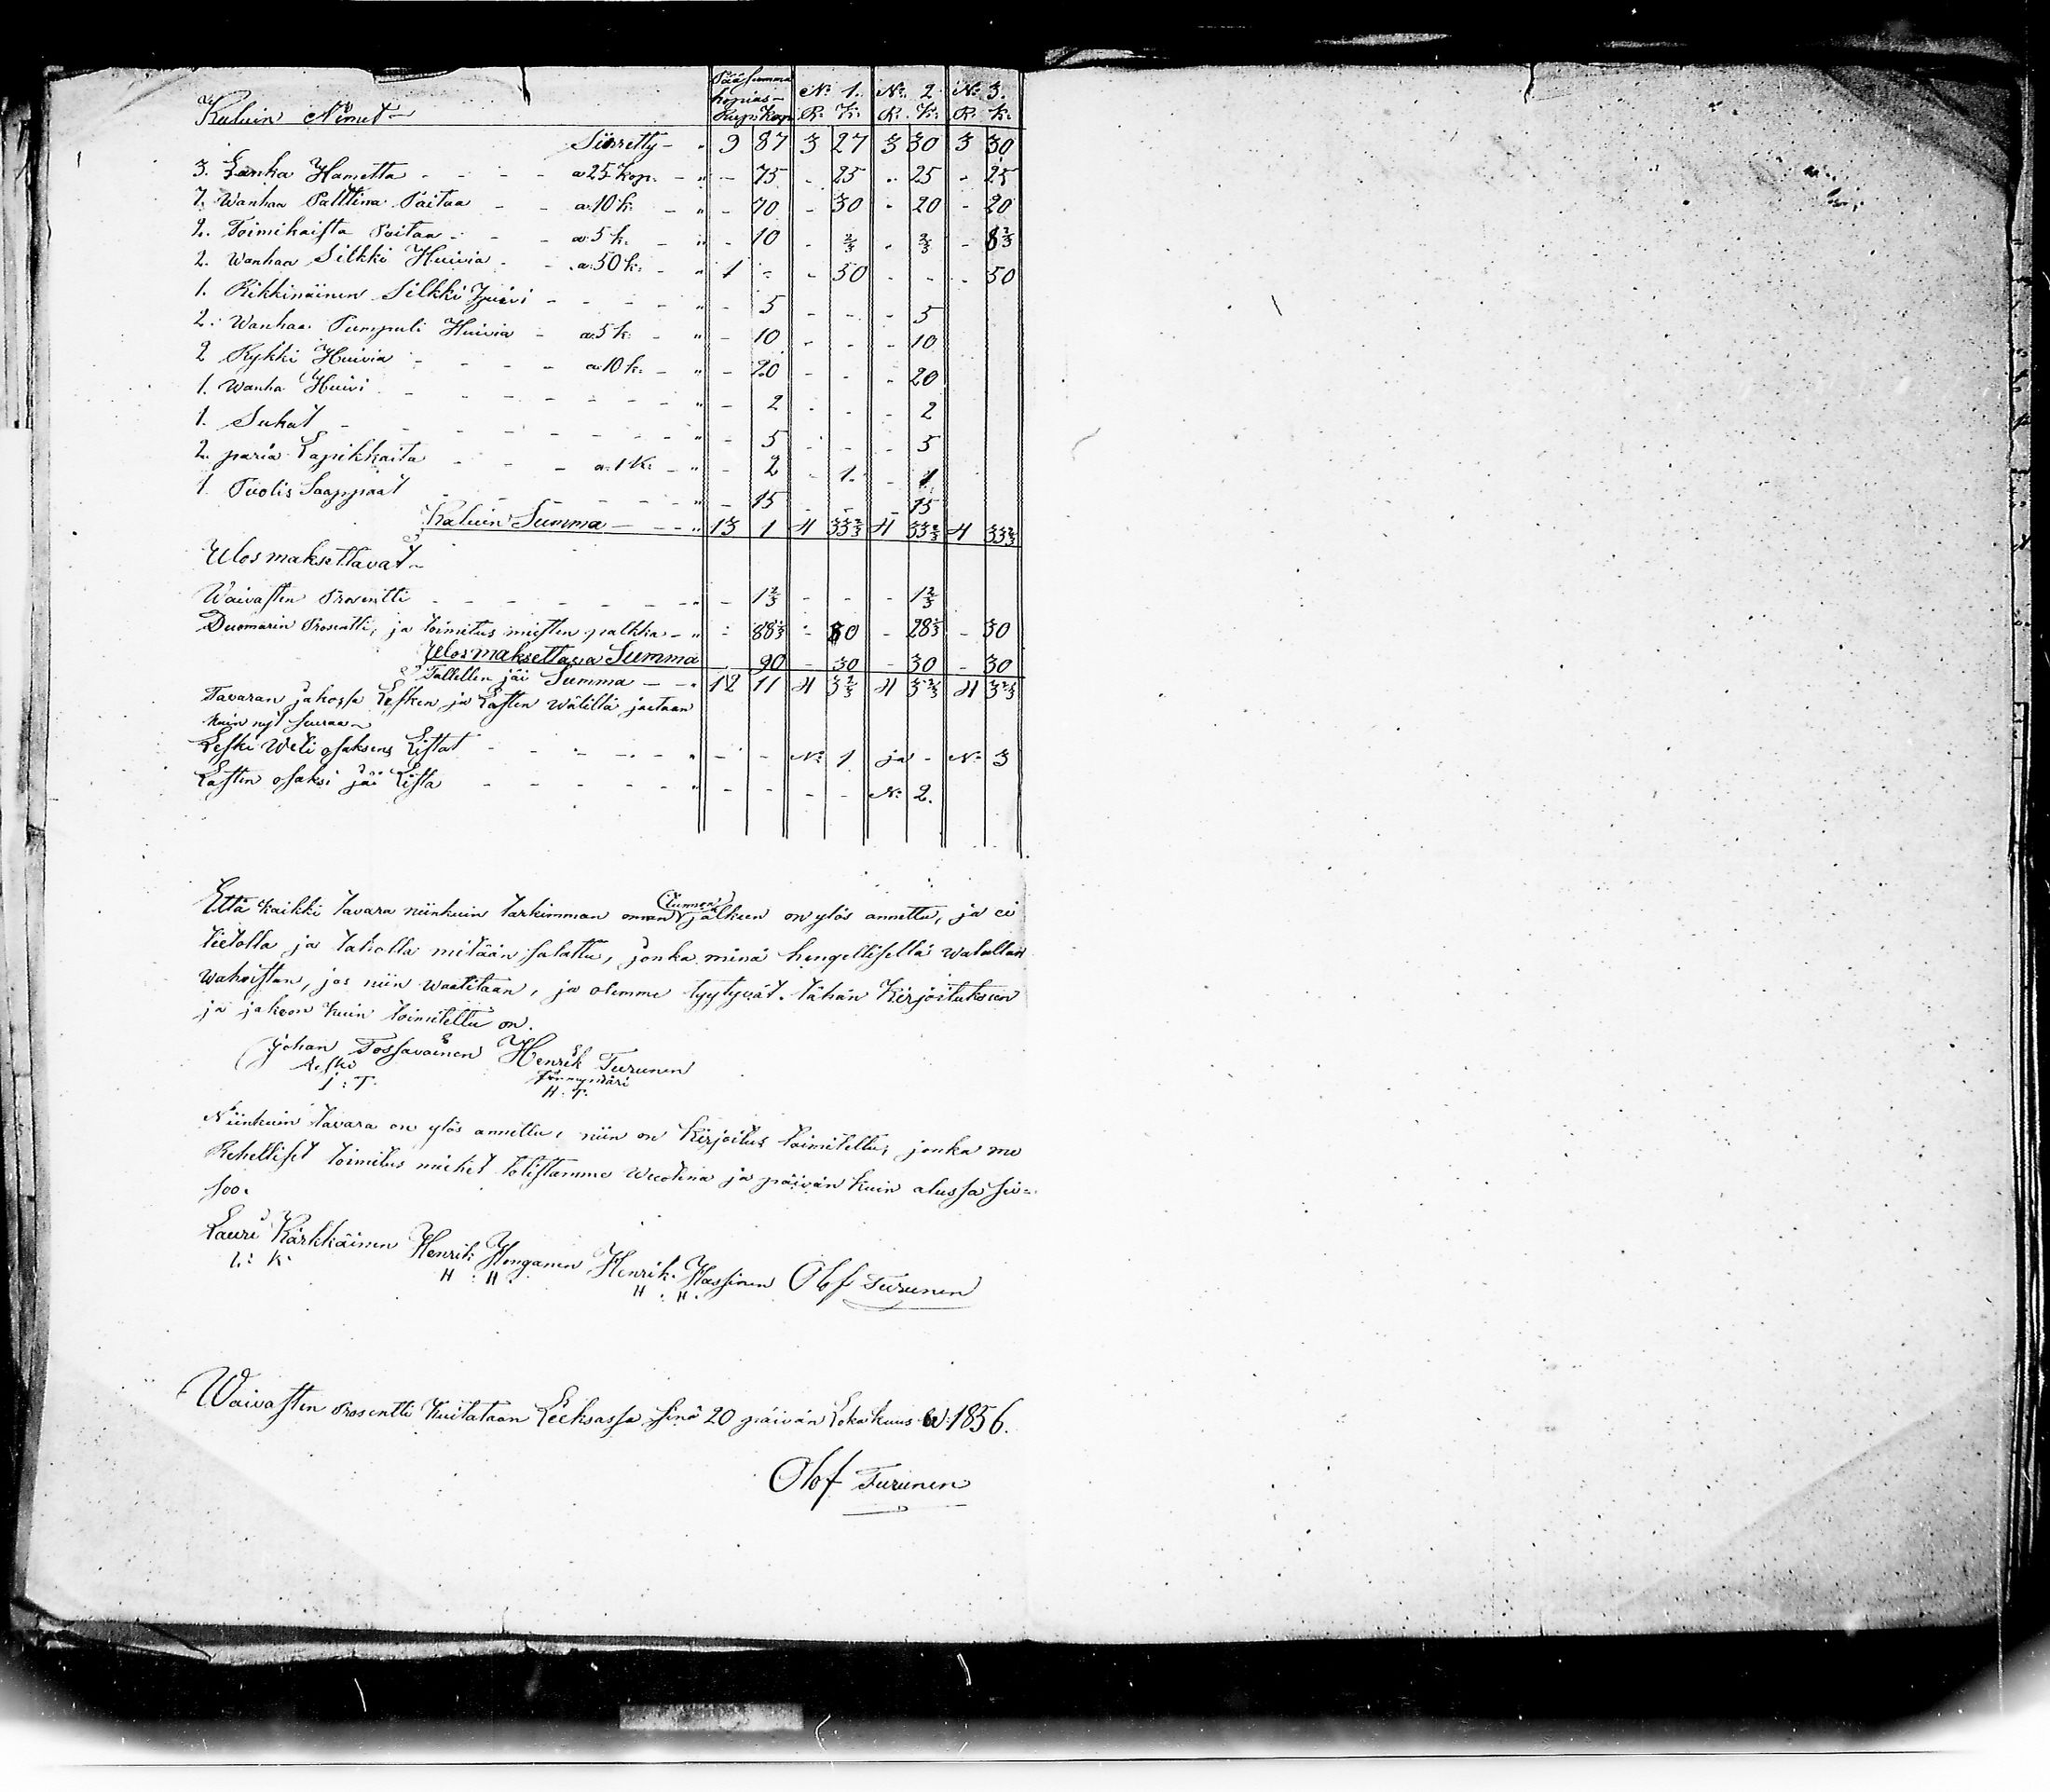 Kaluin Nimet Pää Summa hopias Rup: Kop: N:o 1. R: K: N:o 2 R: K: N:o 3. R: K:
Siirretty 9 87 3 27 3 30 3 30
3. Hametta a 25 kop. - 75 - 25 - 25 - 25
7. Wanhaa Palttina Paitaa a 10 k. - 70 - 30 - 20 - 20
2. Toimikaista Paitaa a 5 k. - 10 - 2/3 - 2/3 - 8 2/3
2. Wanhaa Silkki Huivia a 50 k. 1 - - 50 - - - 50
1. Rikkinäinen Silkki Huivi - 5 - - - 5
2. Wanhaa Tumpuli Huivia a 5 k. - 10 - - - 10
2 Rykki Huivia a 10 k. - 20 - - - 20
1. Wanha Huivi - 2 - - - 2
1. Sukat - 5 - - - 5
2. paria Lapikkaita a 1 K: - 2 - 1. - 1
1. Puolis Saappaat - 15 - - - 15
Kaluin Summa 13 1 4 33 2/3 4 33 2/3 4 33 2/3
Ulosmaksettavat
Waivasten Prosentti - 1 2/3 - - - 1 2/3
Duomarin Prosentti, ja toimitus miesten palkka - 88 1/3 - 30 - 28 1/3 - 30
Ulosmaksettava Summa 90 - 30 - 30 - 30
Tallellen jäi Summa 12 11 4 3 2/3 4 3 2/3 4 3 2/3
Tavaran jakossa Lesken ja Lasten wälillä jaetaan
kuin nyt seuraa
Leski Weti osaksens Listat - - N:o 1 ja - N:o 3
Lasten osaksi jäi Lista - - - - N:o 2.
Että kaikki tavara niinkuin tarkimman oman tunnon jälkeen on ylös annettu, ja ei
tietolla ja taholla mitään salattu, jonka minä hengellisellä walallan
wahwistan, jos niin waatitaan, ja olemme tyytyvät tähän Kirjoitukseen
ja jakoon kuin toimitettu on.
Johan Tossavainen Henrik Turunen
Leski Förmyndäri
J: T. H: T.
Niinkuin tavara on ylös annettu, niin on Kirjoitus toimitettu, jonka me
Rehelliset toimitus miehet totistamme Wuotena ja päivän kuin alussa sei=
soo.
Lauri Kärkkäinen Henrik Honganen Henrik Hassinen Olof Turunen
L: K. H: H. H: H.
Waivasten Prosentti Kuitataan Lieksassa sinä 20 päivän Lokakuus W: 1856.
Olof Turunen